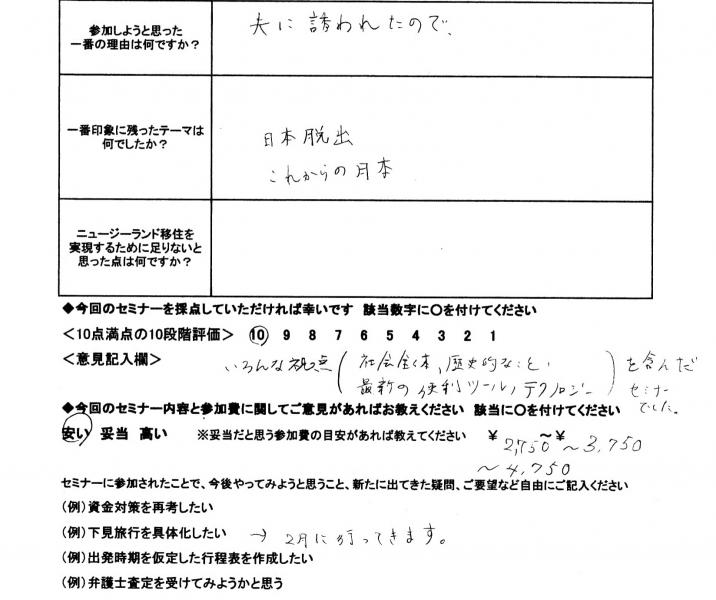 参加しようと思った
一番の理由は何ですか？
夫に誘われたので、
一番印象に残ったテーマは
何でしたか？
日本脱出
これからの日本
ニュージーランド移住を
実現するために足りないと
思った点は何ですか？
◆今回のセミナーを採点していただければ幸いです　該当数字に〇を付けてください
＜10点満点の10段階評価＞　10　9　8　7　6　5　4　3　2　1
＜意見記入欄＞
いろんな視点（社会全体、歴史的なこと、
最新の便利ツール／テクノロジー）を含んだ
セミナー
でした。
◆今回のセミナー内容と参加費に関してご意見があればお教えください　該当に〇を付けてください
安い　妥当　高い　※妥当だと思う参加費の目安があれば教えてください　￥　～￥
2,750　～3,750
～4,750
セミナーに参加されたことで、今後やってみようと思うこと、新たに出てきた疑問、ご要望など自由にご記入ください
（例）資金対策を再考したい
（例）下見旅行を具体化したい　→　2月に行ってきます。
（例）出発時期を仮定した行程表を作成したい
（例）弁護士査定を受けてみようかと思う